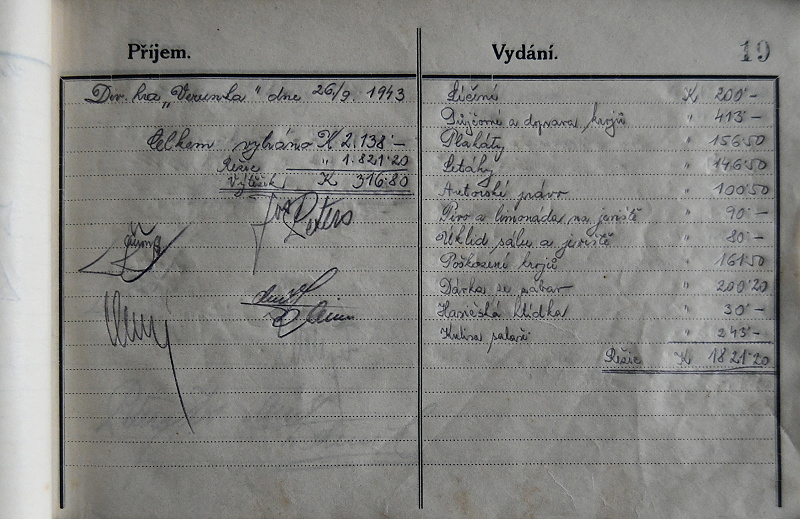 Příjem.
Div. hra „Verunka" dne 26/9. 1943
Celkem vybráno K 2.138·–
Režie " 1.821·20
Výtěžek K 316·80
Jos Peters
Vydání.
19
Líčení K 200·–
Půjčovné a doprava krojů " 413·–
Plakáty " 156·50
Letáky " 146·50
Autorské právo " 100·50
Pivo a limonáda na jeviště " 90·–
Úklid sálu a jeviště " 80·–
Poškození krojů " 161·50
Dávka se zábav " 200·20
Hasičská hlídka " 30·–
" 243·–
Režie K 1821·20